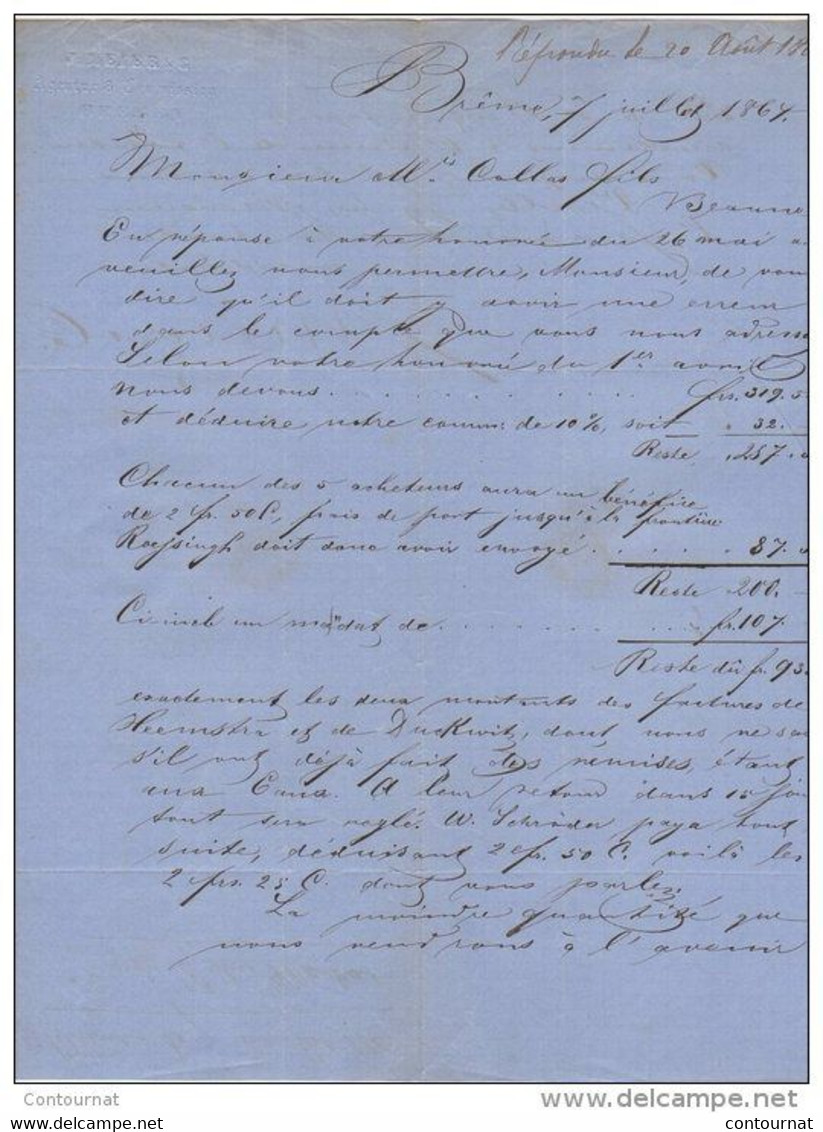 Répondu le 20 Août 18
Brême, 7 juillet 1867.
Monsieur Collas fils
Beaune
En réponse à votre honorée du 26 mai a
veuillez nous permettre, Monsieur, de vou
dire qu'il doit y avoir une erreur
dans le compte que vous nous adress
Selon votre honoré du 1er avril
nous devons . . . . . . . . frs. 319. 5
et déduire notre comm: de 10%, soit " 32. -
Reste " 287. 0
Chacun des 5 acheteurs aura un bénéfice
de 2 fr. 50 C, frais de port jusqu'à la frontière
doit donc avoir envoyé . . . . . . " 87. 0
Reste 200. -
Ci-incl. un mandat de . . . . . . . . fr. 107. -
Reste dû fr. 93.
exactement les deux montants des factures de
Heemstra et de Duckwitz, dont nous ne sa
s'il ont déjà fait des rémises, étant
aux Eaux. A leur retour dans 15 jou
tout sera reglé. W. Schröder paya tout
suite, déduisant 2 fr. 50 C. voilà les
2 frs. 25 C. dont vous parlez.
La moindre quantité que
nous vendrons à l'avenir
Contournat
delcampe.net
Contournat